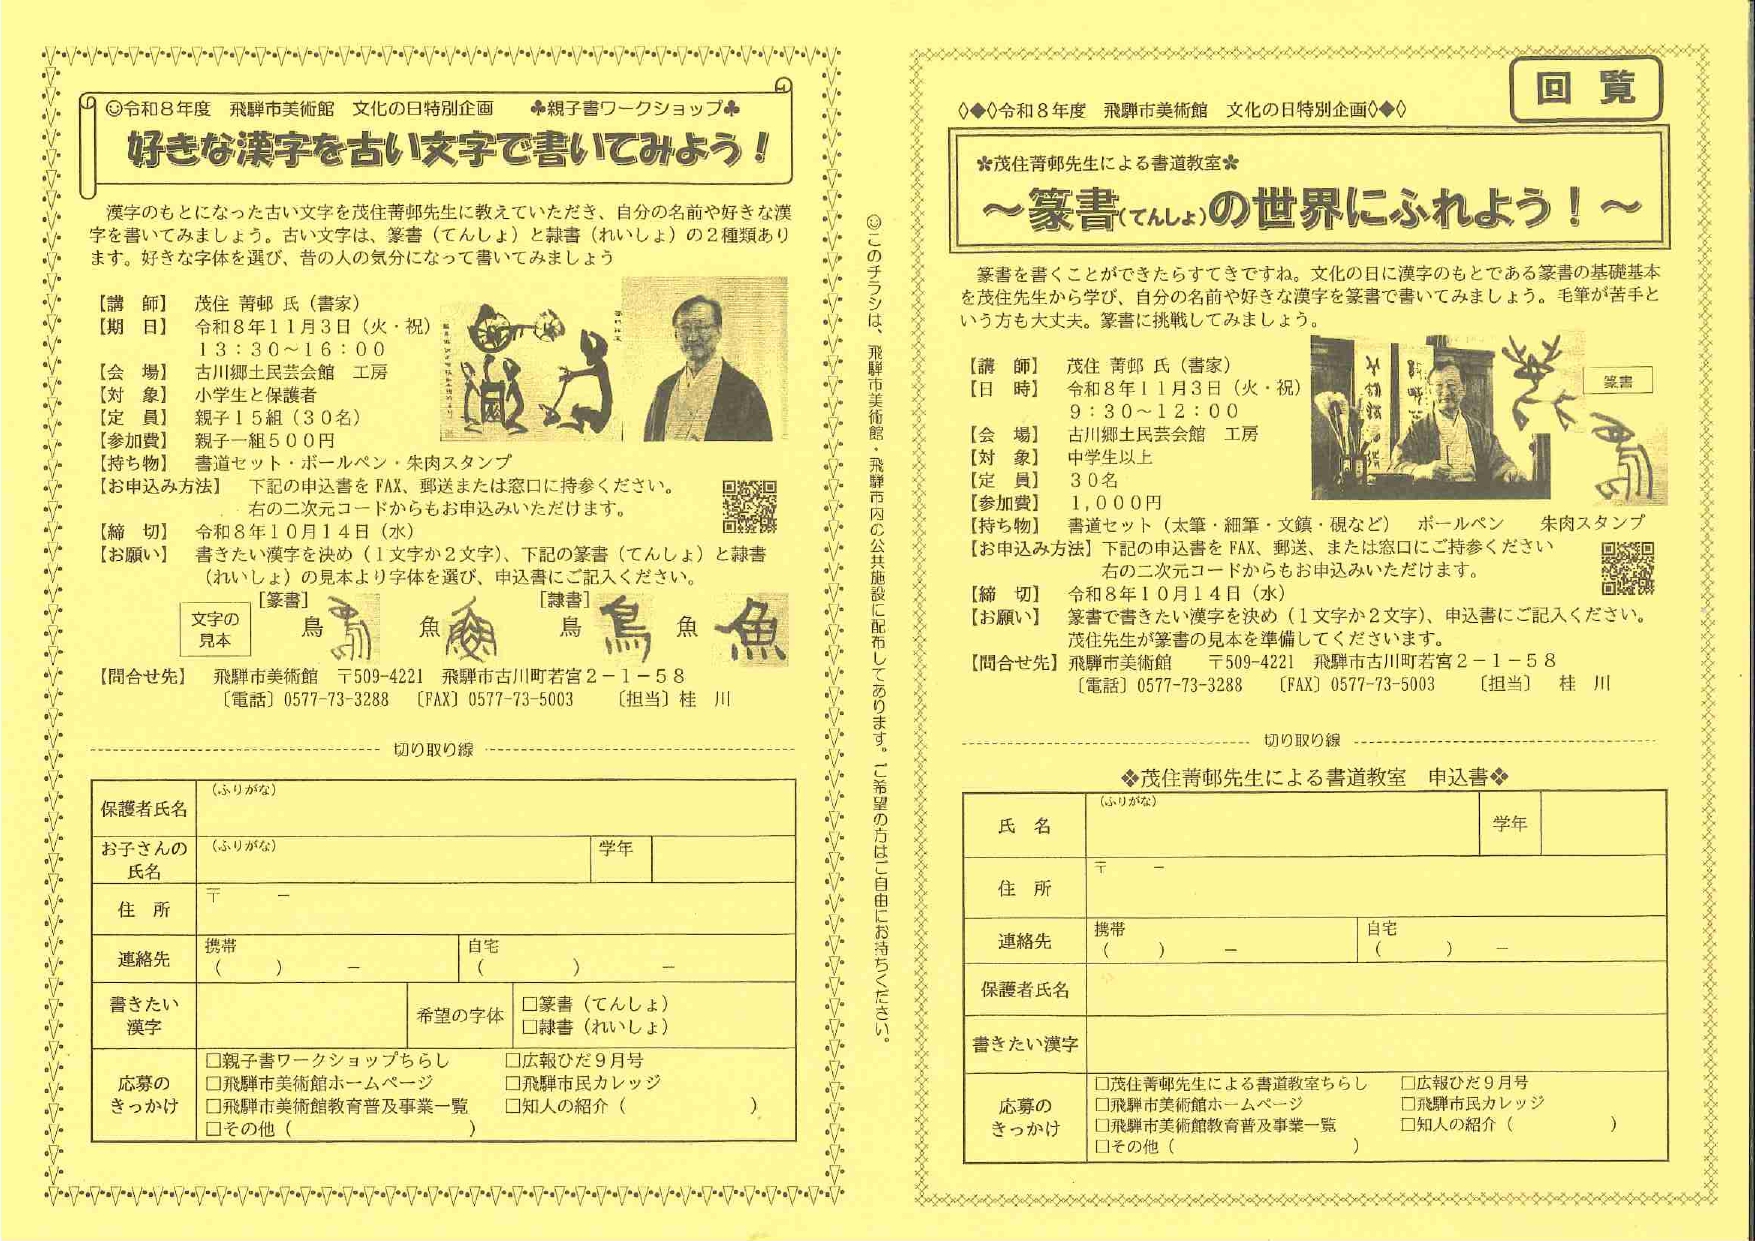 ☺令和８年度　飛騨市美術館　文化の日特別企画　　♣親子書ワークショップ♣
好きな漢字を古い文字で書いてみよう！
漢字のもとになった古い文字を茂住菁邨先生に教えていただき、自分の名前や好きな漢
字を書いてみましょう。古い文字は、篆書（てんしょ）と隷書（れいしょ）の２種類あり
ます。好きな字体を選び、昔の人の気分になって書いてみましょう
【講　師】　茂住 菁邨 氏（書家）
【期　日】　令和８年１１月３日（火・祝）
１３：３０～１６：００
【会　場】　古川郷土民芸会館　工房
【対　象】　小学生と保護者
【定　員】　親子１５組（３０名）
【参加費】　親子一組５００円
【持ち物】　書道セット・ボールペン・朱肉スタンプ
【お申込み方法】　下記の申込書を FAX、郵送または窓口に持参ください。
右の二次元コードからもお申込みいただけます。
【締　切】　令和８年１０月１４日（水）
【お願い】　書きたい漢字を決め（１文字か２文字）、下記の篆書（てんしょ）と隷書
（れいしょ）の見本より字体を選び、申込書にご記入ください。
文字の
見本
［篆書］　［隷書］
鳥　魚　鳥　鳥　魚　魚
【問合せ先】　飛騨市美術館　〒509-4221　飛騨市古川町若宮２－１－５８
〔電話〕0577-73-3288　〔FAX〕0577-73-5003　〔担当〕桂　川
切り取り線
保護者氏名　（ふりがな）
お子さんの
氏名　（ふりがな）　学年
住　所　〒　－
連絡先　携帯　（　）　－　自宅　（　）　－
書きたい
漢字　希望の字体　□篆書（てんしょ）
□隷書（れいしょ）
応募の
きっかけ
□親子書ワークショップちらし　□広報ひだ９月号
□飛騨市美術館ホームページ　□飛騨市民カレッジ
□飛騨市美術館教育普及事業一覧　□知人の紹介（　）
□その他（　）
☺このチラシは、飛騨市美術館・飛騨市内の公共施設に配布してあります。ご希望の方はご自由にお持ちください。
回　覧
◇◆◇令和８年度　飛騨市美術館　文化の日特別企画◇◆◇
✻茂住菁邨先生による書道教室✻
～篆書（てんしょ）の世界にふれよう！～
篆書を書くことができたらすてきですね。文化の日に漢字のもとである篆書の基礎基本
を茂住先生から学び、自分の名前や好きな漢字を篆書で書いてみましょう。毛筆が苦手と
いう方も大丈夫。篆書に挑戦してみましょう。
【講　師】　茂住 菁邨 氏（書家）
【日　時】　令和８年１１月３日（火・祝）
９：３０～１２：００
【会　場】　古川郷土民芸会館　工房
【対　象】　中学生以上
【定　員】　３０名
【参加費】　１,０００円
篆書
【持ち物】　書道セット（太筆・細筆・文鎮・硯など）　ボールペン　　朱肉スタンプ
【お申込み方法】下記の申込書を FAX、郵送、または窓口にご持参ください
右の二次元コードからもお申込みいただけます。
【締　切】　令和８年１０月１４日（水）
【お願い】　篆書で書きたい漢字を決め（１文字か２文字）、申込書にご記入ください。
茂住先生が篆書の見本を準備してくださいます。
【問合せ先】飛騨市美術館　〒509-4221　飛騨市古川町若宮２－１－５８
〔電話〕0577-73-3288　〔FAX〕0577-73-5003　〔担当〕　桂　川
切り取り線
❖茂住菁邨先生による書道教室　申込書❖
氏　名　（ふりがな）　学年
住　所　〒　－
連絡先　携帯　（　）　－　自宅　（　）　－
保護者氏名
書きたい漢字
応募の
きっかけ
□茂住菁邨先生による書道教室ちらし　□広報ひだ９月号
□飛騨市美術館ホームページ　□飛騨市民カレッジ
□飛騨市美術館教育普及事業一覧　□知人の紹介（　）
□その他（　）